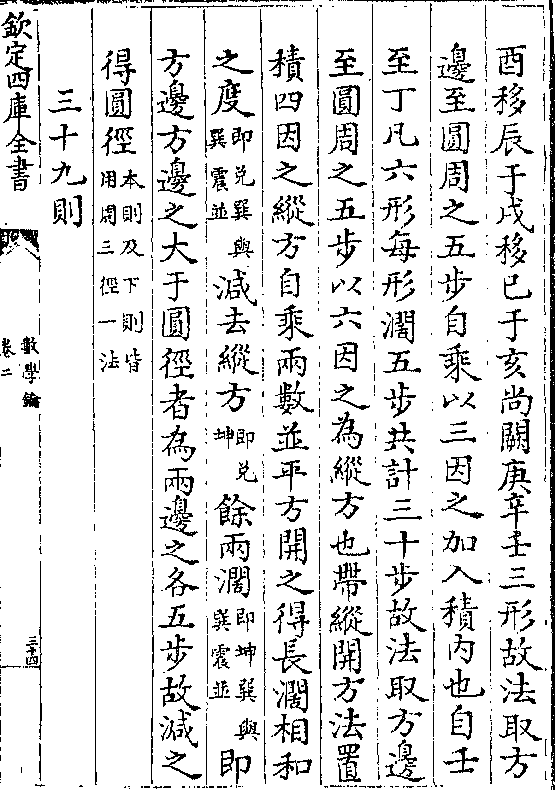 酉移辰于戌移巳于亥尚闕庚辛壬三形故法取方
邊至圓周之五步自乘以三因之加入積內也自壬
至丁凡六形每形濶五步共計三十步故法取方邊
至圓周之五步以六因之為縱方也帶縱開方法置
積四因之縱方自乘兩數並平方開之得長濶相和
之度即兌巽與巽震並減去縱方即兌坤餘兩濶即坤巽與巽震並即
方邊方邊之大于圓徑者為兩邊之各五步故減之
得圓徑本則及下則皆用周三徑一法
三十九則
欽定四庫全書
數學鑰
卷二
三十四